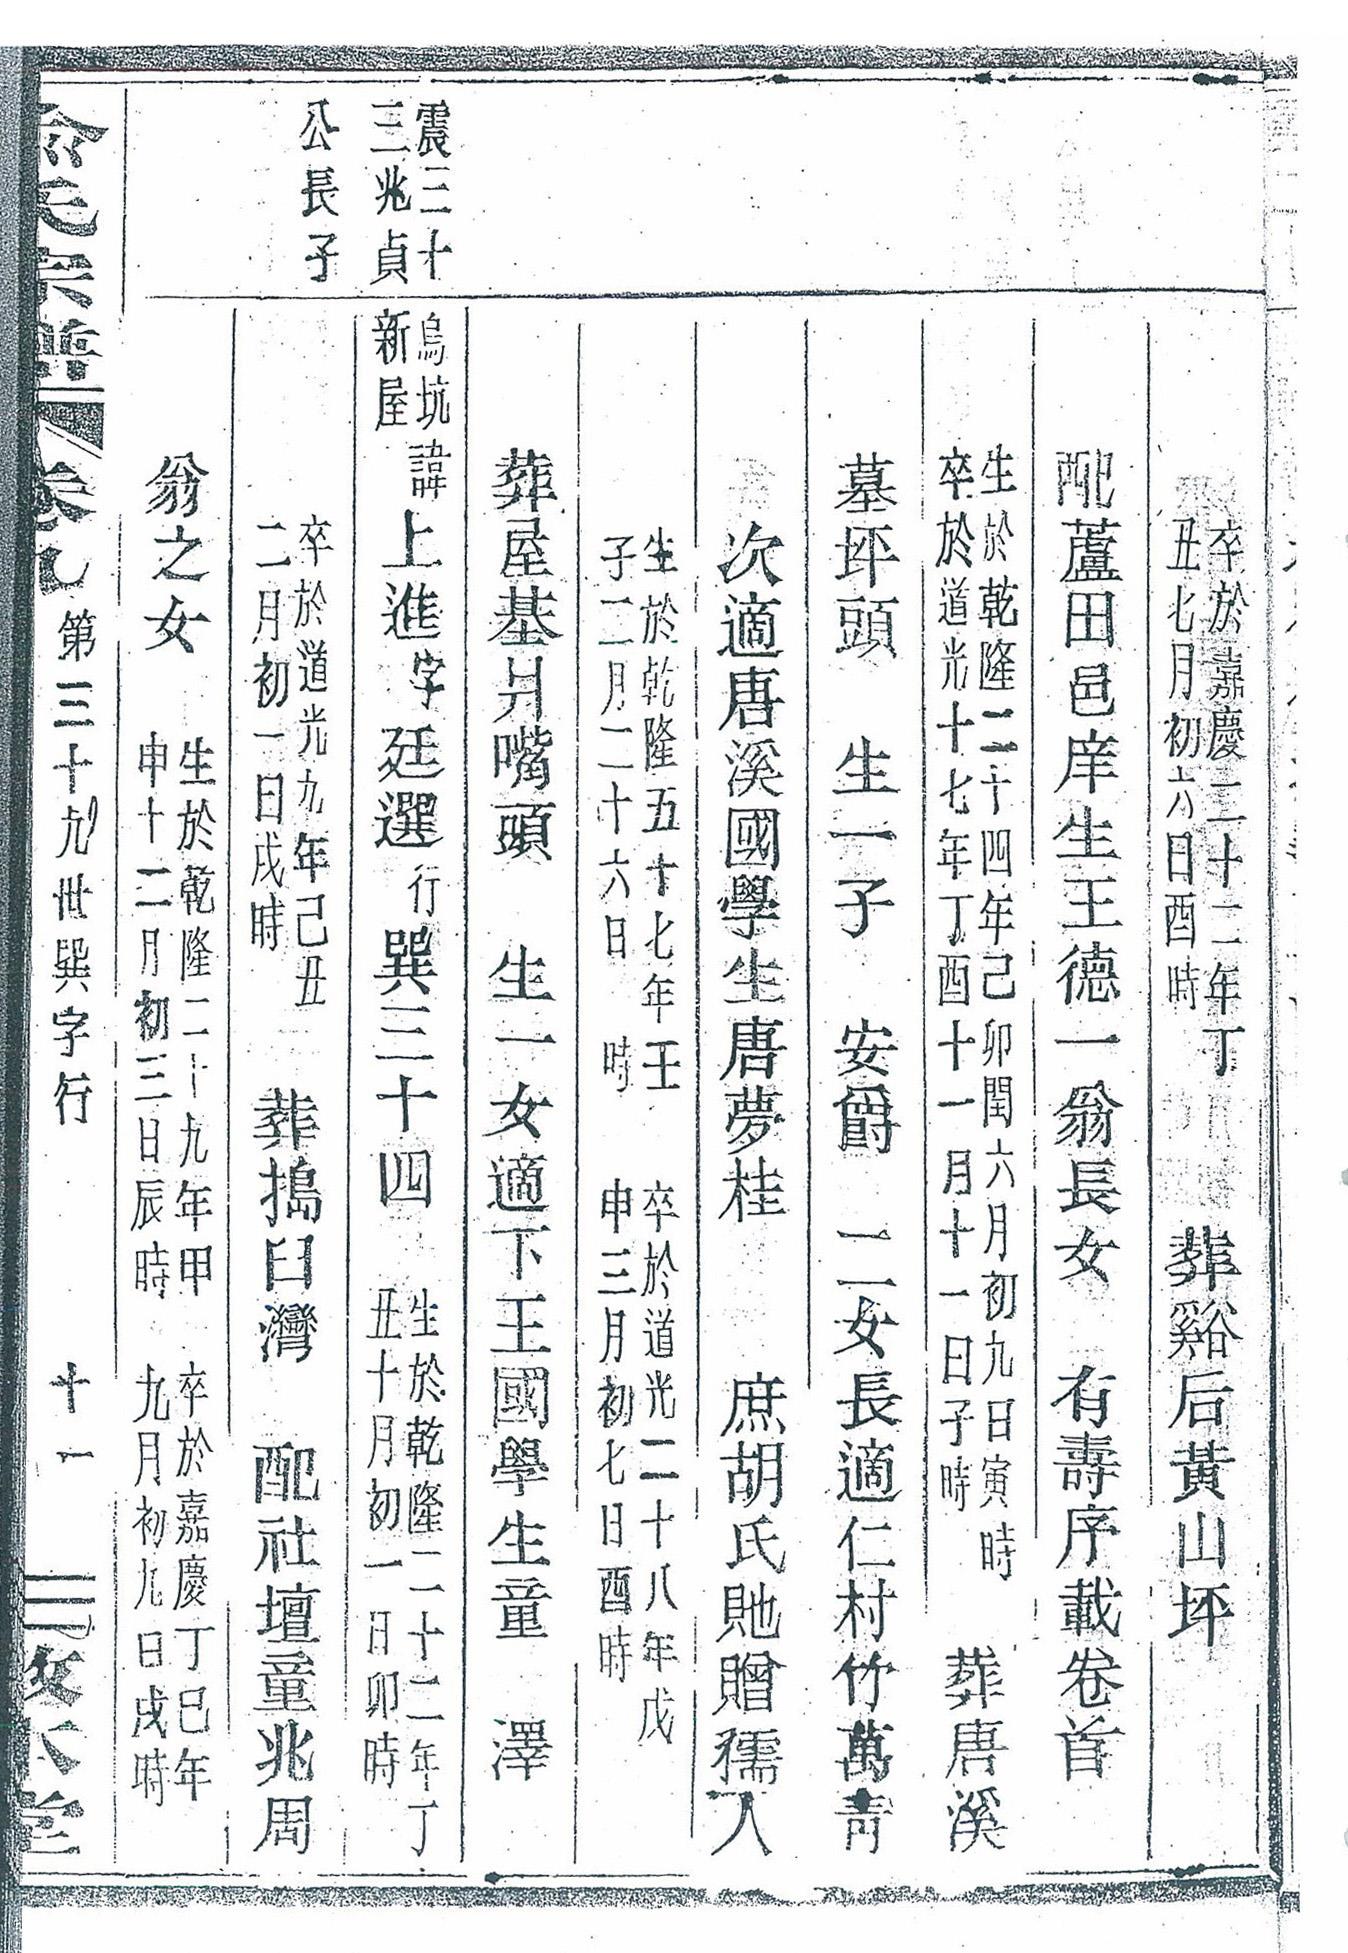 卒於嘉慶二十二年丁
丑七月初六日酉時
葬谿后黃山坪
配蘆田邑庠生王德一翁長女 有壽序載卷首
生於乾隆二十四年己卯閏六月初九日寅時
卒於道光十七年丁酉十一月十一日子時
葬唐溪
墓坪頭 生一子 安爵 二女長適仁村竹萬青
次適唐溪國學生唐夢桂 庶胡氏貤贈孺人
生於乾隆五十七年壬
子二月二十六日 時
卒於道光二十八年戊
申三月初七日酉時
葬屋基爿嘴頭 生一女適下王國學生童 澤
震三十
三兆貞
公長子
烏坑
新屋
諱上進字廷選行巽三十四
生於乾隆二十二年丁
丑十月初一日卯時
卒於道光九年己丑
二月初一日戌時
葬搗臼灣 配社壇童兆周
翁之女
生於乾隆二十九年甲
申十二月初三日辰時
卒於嘉慶丁巳年
九月初九日戌時
俞氏宗譜
卷九
第三十九世巽字行
十一
敦本堂